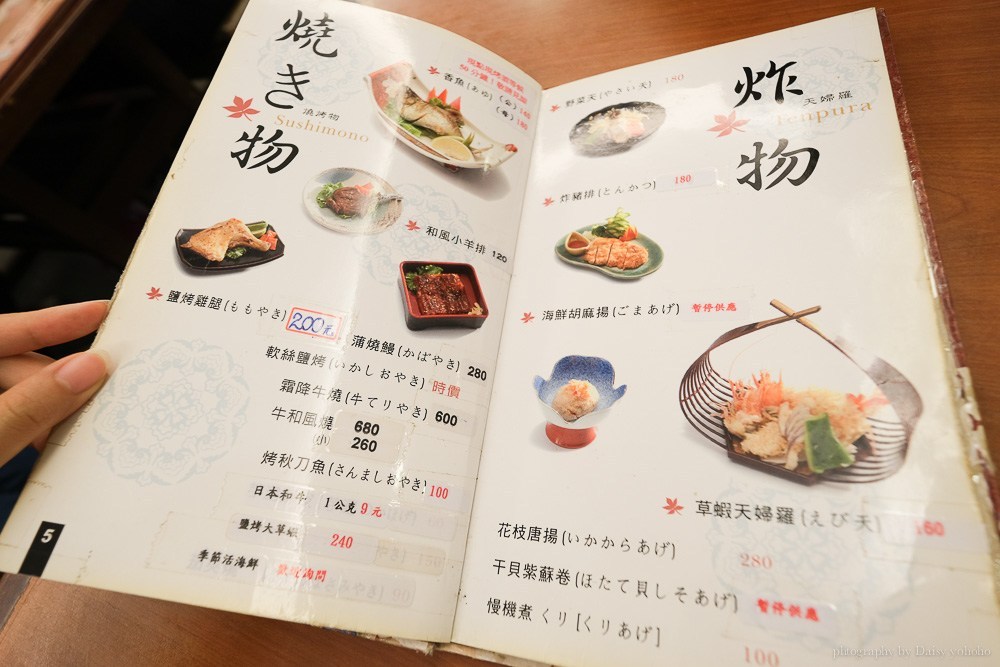 燒き物
燒烤物
Sushimono
現點現烤需等候
香魚(あゆ)(公)140
(母)180
和風小羊排 120
鹽烤雞腿(ももやき) 200元
蒲燒鰻(かばやき) 280
軟絲鹽烤(いかしおやき) 時價
霜降牛燒(牛てりやき) 600
牛和風燒 680
(小) 260
烤秋刀魚(さんましおやき) 100
日本和牛 1公克9元
鹽烤大草蝦 240
季節活海鮮 歡迎詢問
5
炸物
天婦羅
Tenpura
野菜天(やさい天) 180
炸豬排(とんかつ) 180
海鮮胡麻揚(ごまあげ) 暫停供應
草蝦天婦羅(えび天)
花枝唐揚(いかからあげ) 280
干貝紫蘇卷(ほたて貝しそあげ) 暫停供應
慢機煮くり[くりあげ] 100
photography by Daisy yohoho